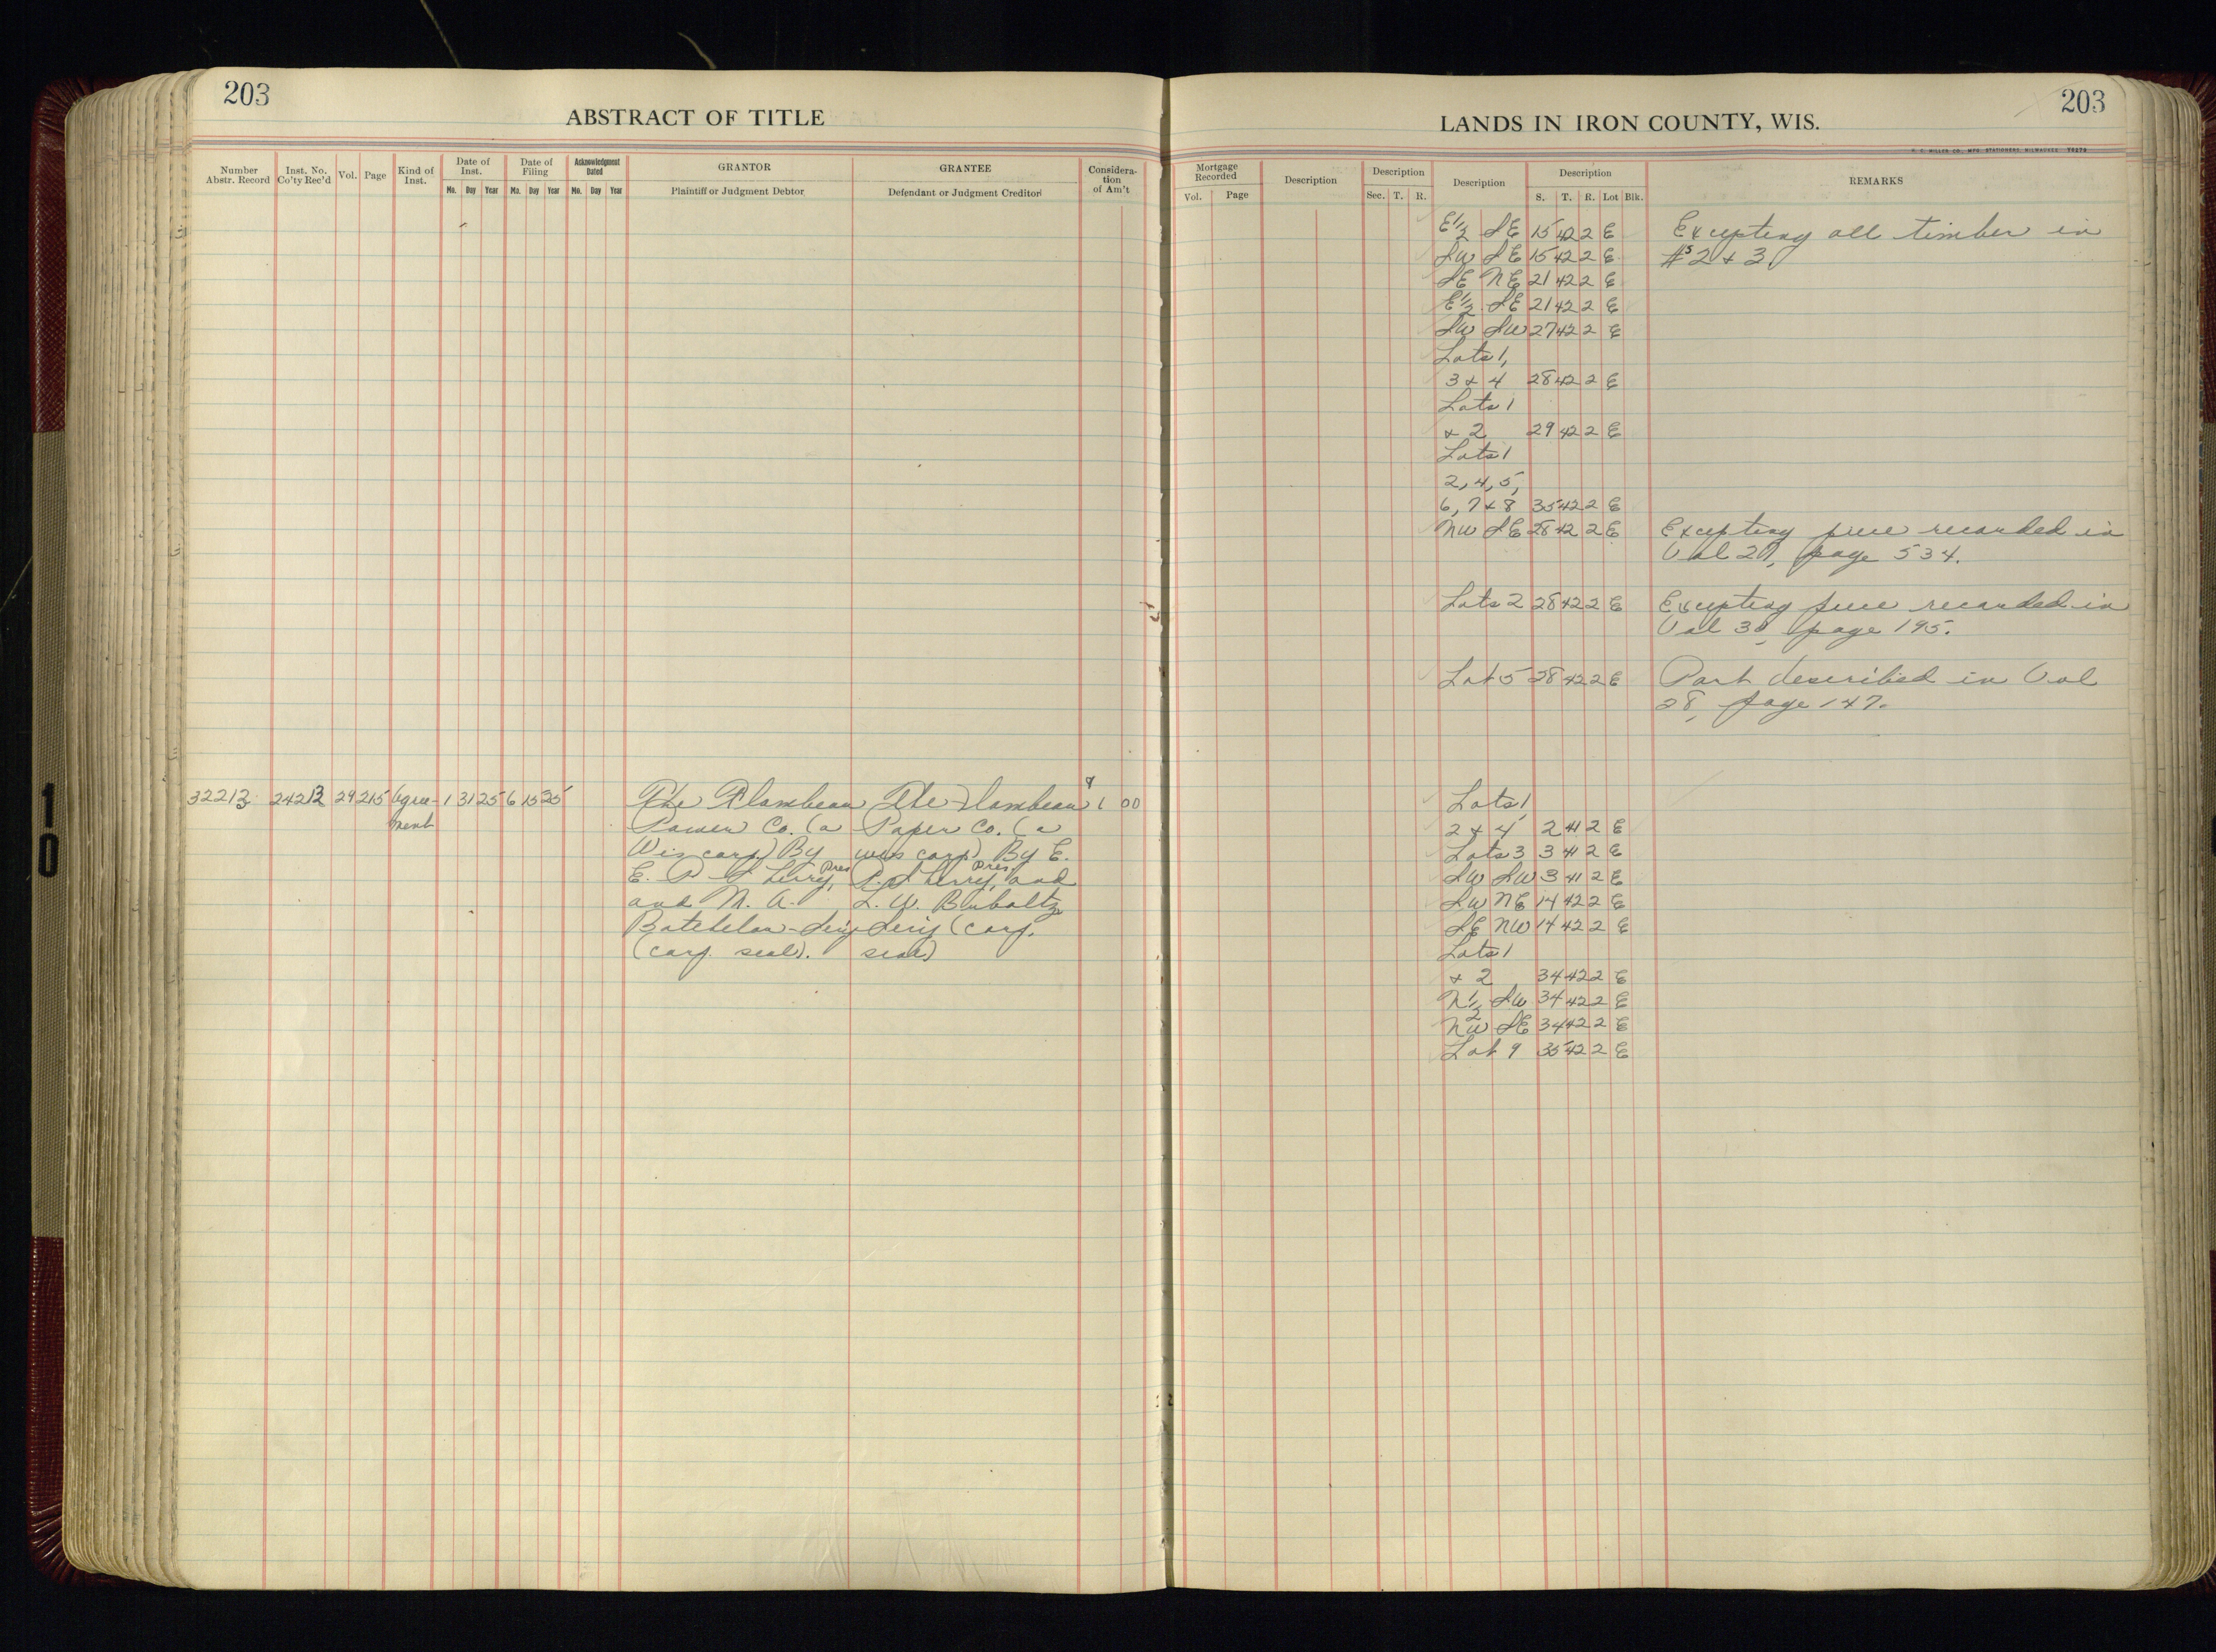 203
ABSTRACT OF TITLE
Number Abstr. Record
Inst. No. Co'ty Rec'd
Vol.
Page
Kind of Inst.
Date of Inst.
Mo. Day Year
Date of Filing
Mo. Day Year
Acknowledgment Dated
Mo. Day Year
GRANTOR
Plaintiff or Judgment Debtor
GRANTEE
Defendant or Judgment Creditor
Consideration of Am't
32213 24213 29 215 Agree- 1 31 25 6 15 25 The Flambeau The Flambeau & 1 00
ment Power Co. (a Paper Co. (a
Wis corp) By Wis corp) By E.
E. P. Sherry, Pres P. Sherry, Pres and
and M. A. L. W.
Batchelor - Sec'y Sec'y (corp.
(corp. seal). seal)
203
LANDS IN IRON COUNTY, WIS.
Mortgage Recorded
Vol. Page
Description
Description
Sec. T. R.
Description
Description
S. T. R. Lot Blk.
REMARKS
E½ SE 15 42 2 E Excepting all timber in
SW SE 15 42 2 E #s 2 & 3.
SE NE 21 42 2 E
E½ SE 21 42 2 E
SW SW 27 42 2 E
Lots 1,
3 & 4 28 42 2 E
Lots 1
& 2 29 42 2 E
Lots 1
2, 4, 5,
6, 7 & 8 35 42 2 E
NW SE 28 42 2 E Excepting piece recorded in
Vol 27, page 534.
Lots 2 28 42 2 E Excepting piece recorded in
Vol 30, page 195.
Lot 5 28 42 2 E Part described in Vol
28, page 147.
Lots 1,
2 & 4 2 41 2 E
Lots 3 3 41 2 E
SW SW 3 41 2 E
SW NE 14 42 2 E
SE NW 14 42 2 E
Lots 1
& 2 34 42 2 E
N½ SW 34 42 2 E
NW SE 34 42 2 E
Lot 9 35 42 2 E
10